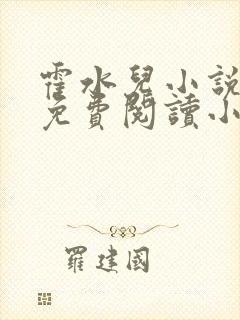 霍水兒小說
免費閱讀小
羅建國